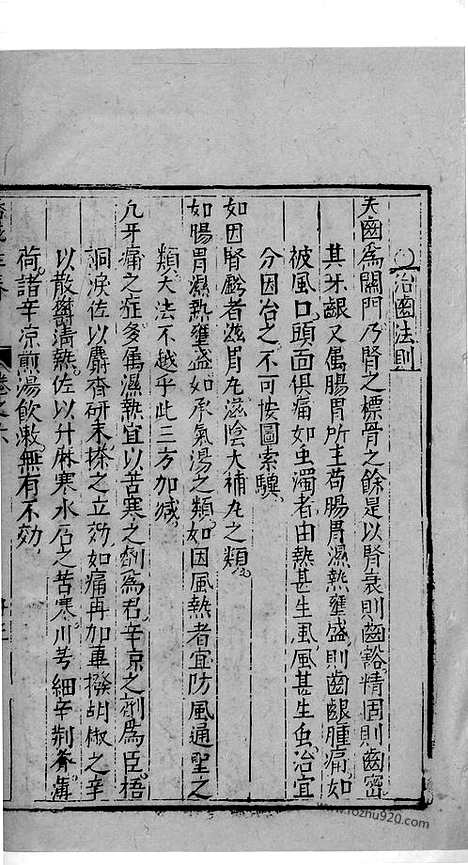 治齒法則
夫齒為關門乃腎之標骨之餘是以腎衰則齒豁精固則齒密
其牙齦又属腸胃所主苟腸胃濕熱壅盛則齒齦腫痛如
被風口頭面俱痛如虫濁者由熱甚生風風甚生虫治宜
分因治之不可按圖索驥
如因腎虧者滋腎丸滋陰大補丸之類
如腸胃濕熱壅盛如承氣湯之類如因風熱者宜防風通聖之
類夫法不越乎此三方加减
凢牙痛之症多属濕熱宜以苦寒之劑為君辛凉之剂為臣梧
桐淚佐以麝香研末搽之立効如痛再加蓽撥胡椒之辛
以散欝清熱佐以升麻寒水石之苦寒川芎細辛荆芥薄
荷諸辛凉煎湯飲漱無有不効
卷之六
www.fozhu920.com